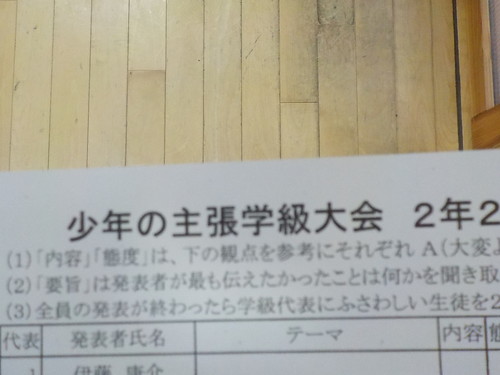 少年の主張学級大会 2年2
(1)「内容」「態度」は、下の観点を参考にそれぞれ A(大変よ
(2)「要旨」は発表者が最も伝えたかったことは何かを聞き取
(3) 全員の発表が終わったら学級代表にふさわしい生徒を2
代表 発表者氏名 テーマ 内容 態
1 伊藤 康介